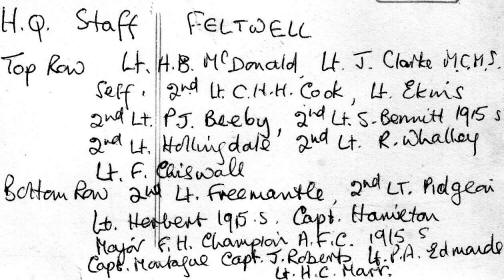 H.Q. Staff FELTWELL
Top Row Lt. H.B. McDonald, Lt. J. Clarke M.C, M.S.
Self, 2nd Lt. C.H.H. Cook, Lt. Ekins
2nd Lt. P.J. Beeby, 2nd Lt. S. Bennitt 1915 s
2nd Lt. Hollingdale 2nd Lt. R. Whalley
Lt. F. Chiswall
Bottom Row 2nd Lt. Freemantle, 2nd LT. Pidgeon
Lt. Herbert 1915.S. Capt. Hamilton
Major F.H. Champion A.F.C. 1915 S
Capt. Montague Capt. J. Roberts Lt. P.A. Edmunds
Lt. H.C. Marr.